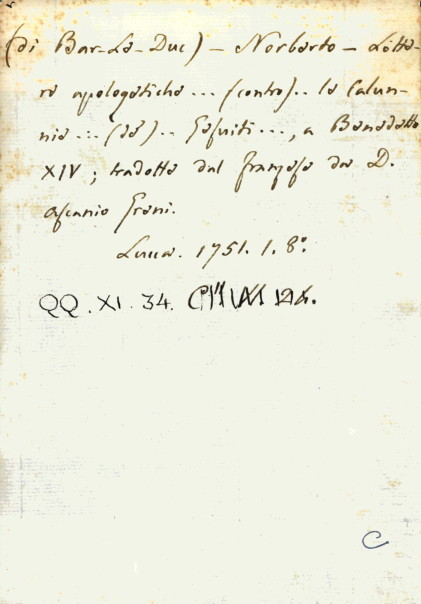 (di Bar-Le-Duc) - Norberto - Lette-
re apologetiche ... (contro) .. le Calun-
nie ... (de) .. Gesuiti ..., a Benedetto
XIV; tradotte dal franzese da D.
Ascanio Erani.
Lucca. 1751. 1. 8º.
QQ. XI. 34.
C